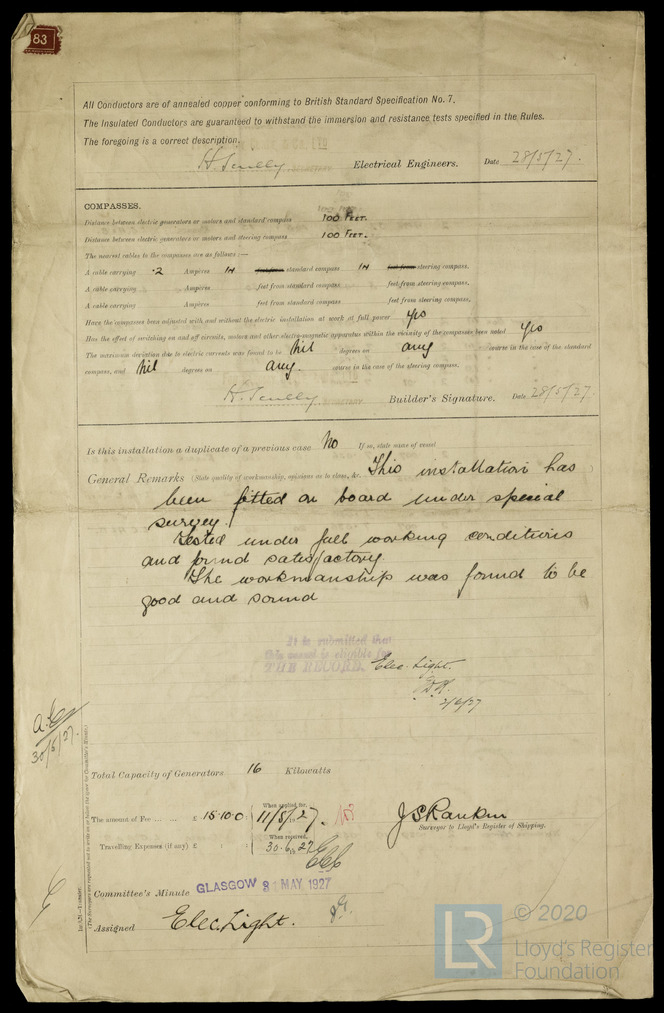 83
All Conductors are of annealed copper conforming to British Standard Specification No. 7.
The Insulated Conductors are guaranteed to withstand the immersion and resistance tests specified in the Rules.
The foregoing is a correct description.
H. Scully Electrical Engineers. Date 28/5/27.
COMPASSES.
Distance between electric generators or motors and standard compass 100 FEET.
Distance between electric generators or motors and steering compass 100 FEET.
The nearest cables to the compasses are as follows:—
A cable carrying .2 Ampères IN feet from standard compass IN feet from steering compass.
A cable carrying Ampères feet from standard compass feet from steering compass.
A cable carrying Ampères feet from standard compass feet from steering compass.
Have the compasses been adjusted with and without the electric installation at work at full power yes
Has the effect of switching on and off circuits, motors and other electro-magnetic apparatus within the vicinity of the compasses been noted yes
The maximum deviation due to electric currents was found to be Nil degrees on any course in the case of the standard
compass, and Nil degrees on any. course in the case of the steering compass.
H. Scully Builder's Signature. Date 28/5/27
Is this installation a duplicate of a previous case No If so, state name of vessel
General Remarks (State quality of workmanship, opinions as to class, &c. This installation has
been fitted on board under special
survey.
Tested under full working conditions
and found satisfactory
The workmanship was found to be
good and sound
It is submitted that
this vessel is eligible for
THE RECORD. Elec. Light.
2/6/27
30/5/27.
Total Capacity of Generators 16 Kilowatts
The amount of Fee ... ... £ 15.10.0 When applied for, 11/5/27.
Travelling Expenses (if any) £ : : When received, 30.6.27
J S Rankin
Surveyor to Lloyd's Register of Shipping.
Committee's Minute GLASGOW 31 MAY 1927
Assigned Elec. Light.
LR © 2020
Lloyd's Register
Foundation